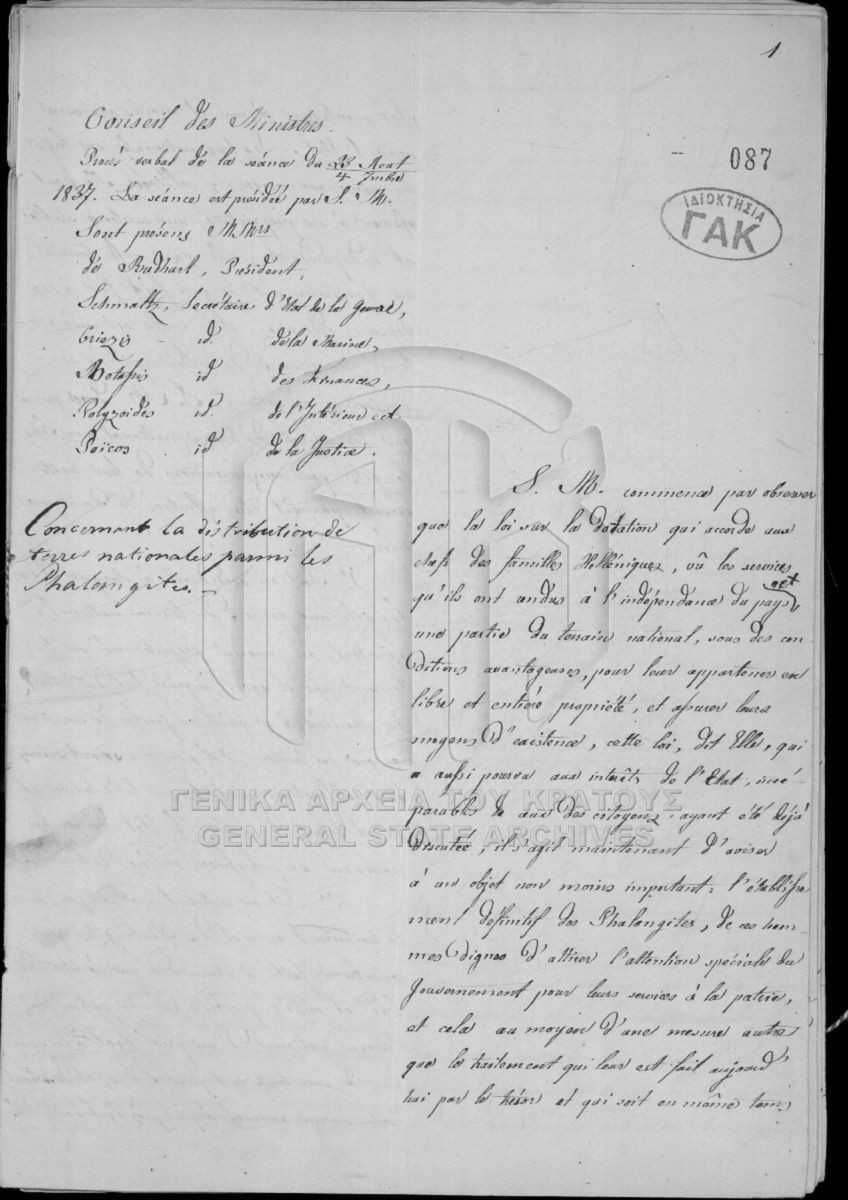 1
087
ΙΔΙΟΚΤΗΣΙΑ
ΓΑΚ
Conseil des Ministres.
Procès verbal de la séance du 23 Aout / 4 7mbre
1837. La séance est présidée par S. M.
Sont présens MMrs
de Rudhart, Président,
Schmaltz, Secrétaire d'Etat de la Guerre,
Criezis id. de la Marine,
Botassis id des finances,
Polyzoidès id. de l'Intérieur et
Païcos id de la Justice.
Concernant la distribution de
terres nationales parmi les
Phalangites.
S. M. commence par observer
que la loi sur la dotation qui accorde aux
chefs des familles Helléniques, vû les services
qu'ils ont rendus à l'indépendance du pays
une partie du terrain national, sous des con-
ditions avantageuses, pour leur appartenir en
libre et entière propriété, et assurer leurs
moyens d'existence, cette loi, dit Elle, qui
a aussi pourvu aux intérêts de l'Etat, insé-
parables de ceux des citoyens, ayant été déjà
discutée, il s'agit maintenant d'aviser
à un objet non moins important: l'établisse
ment définitif des Phalangites, de ces hom-
mes dignes d'attirer l'attention spéciale du
Gouvernement pour leurs services à la patrie,
et cela au moyen d'une mesure autre
que le traitement qui leur est fait aujourd'
hui par le trésor et qui soit en même tems
ΓΕΝΙΚΑ ΑΡΧΕΙΑ ΤΟΥ ΚΡΑΤΟΥΣ
GENERAL STATE ARCHIVES